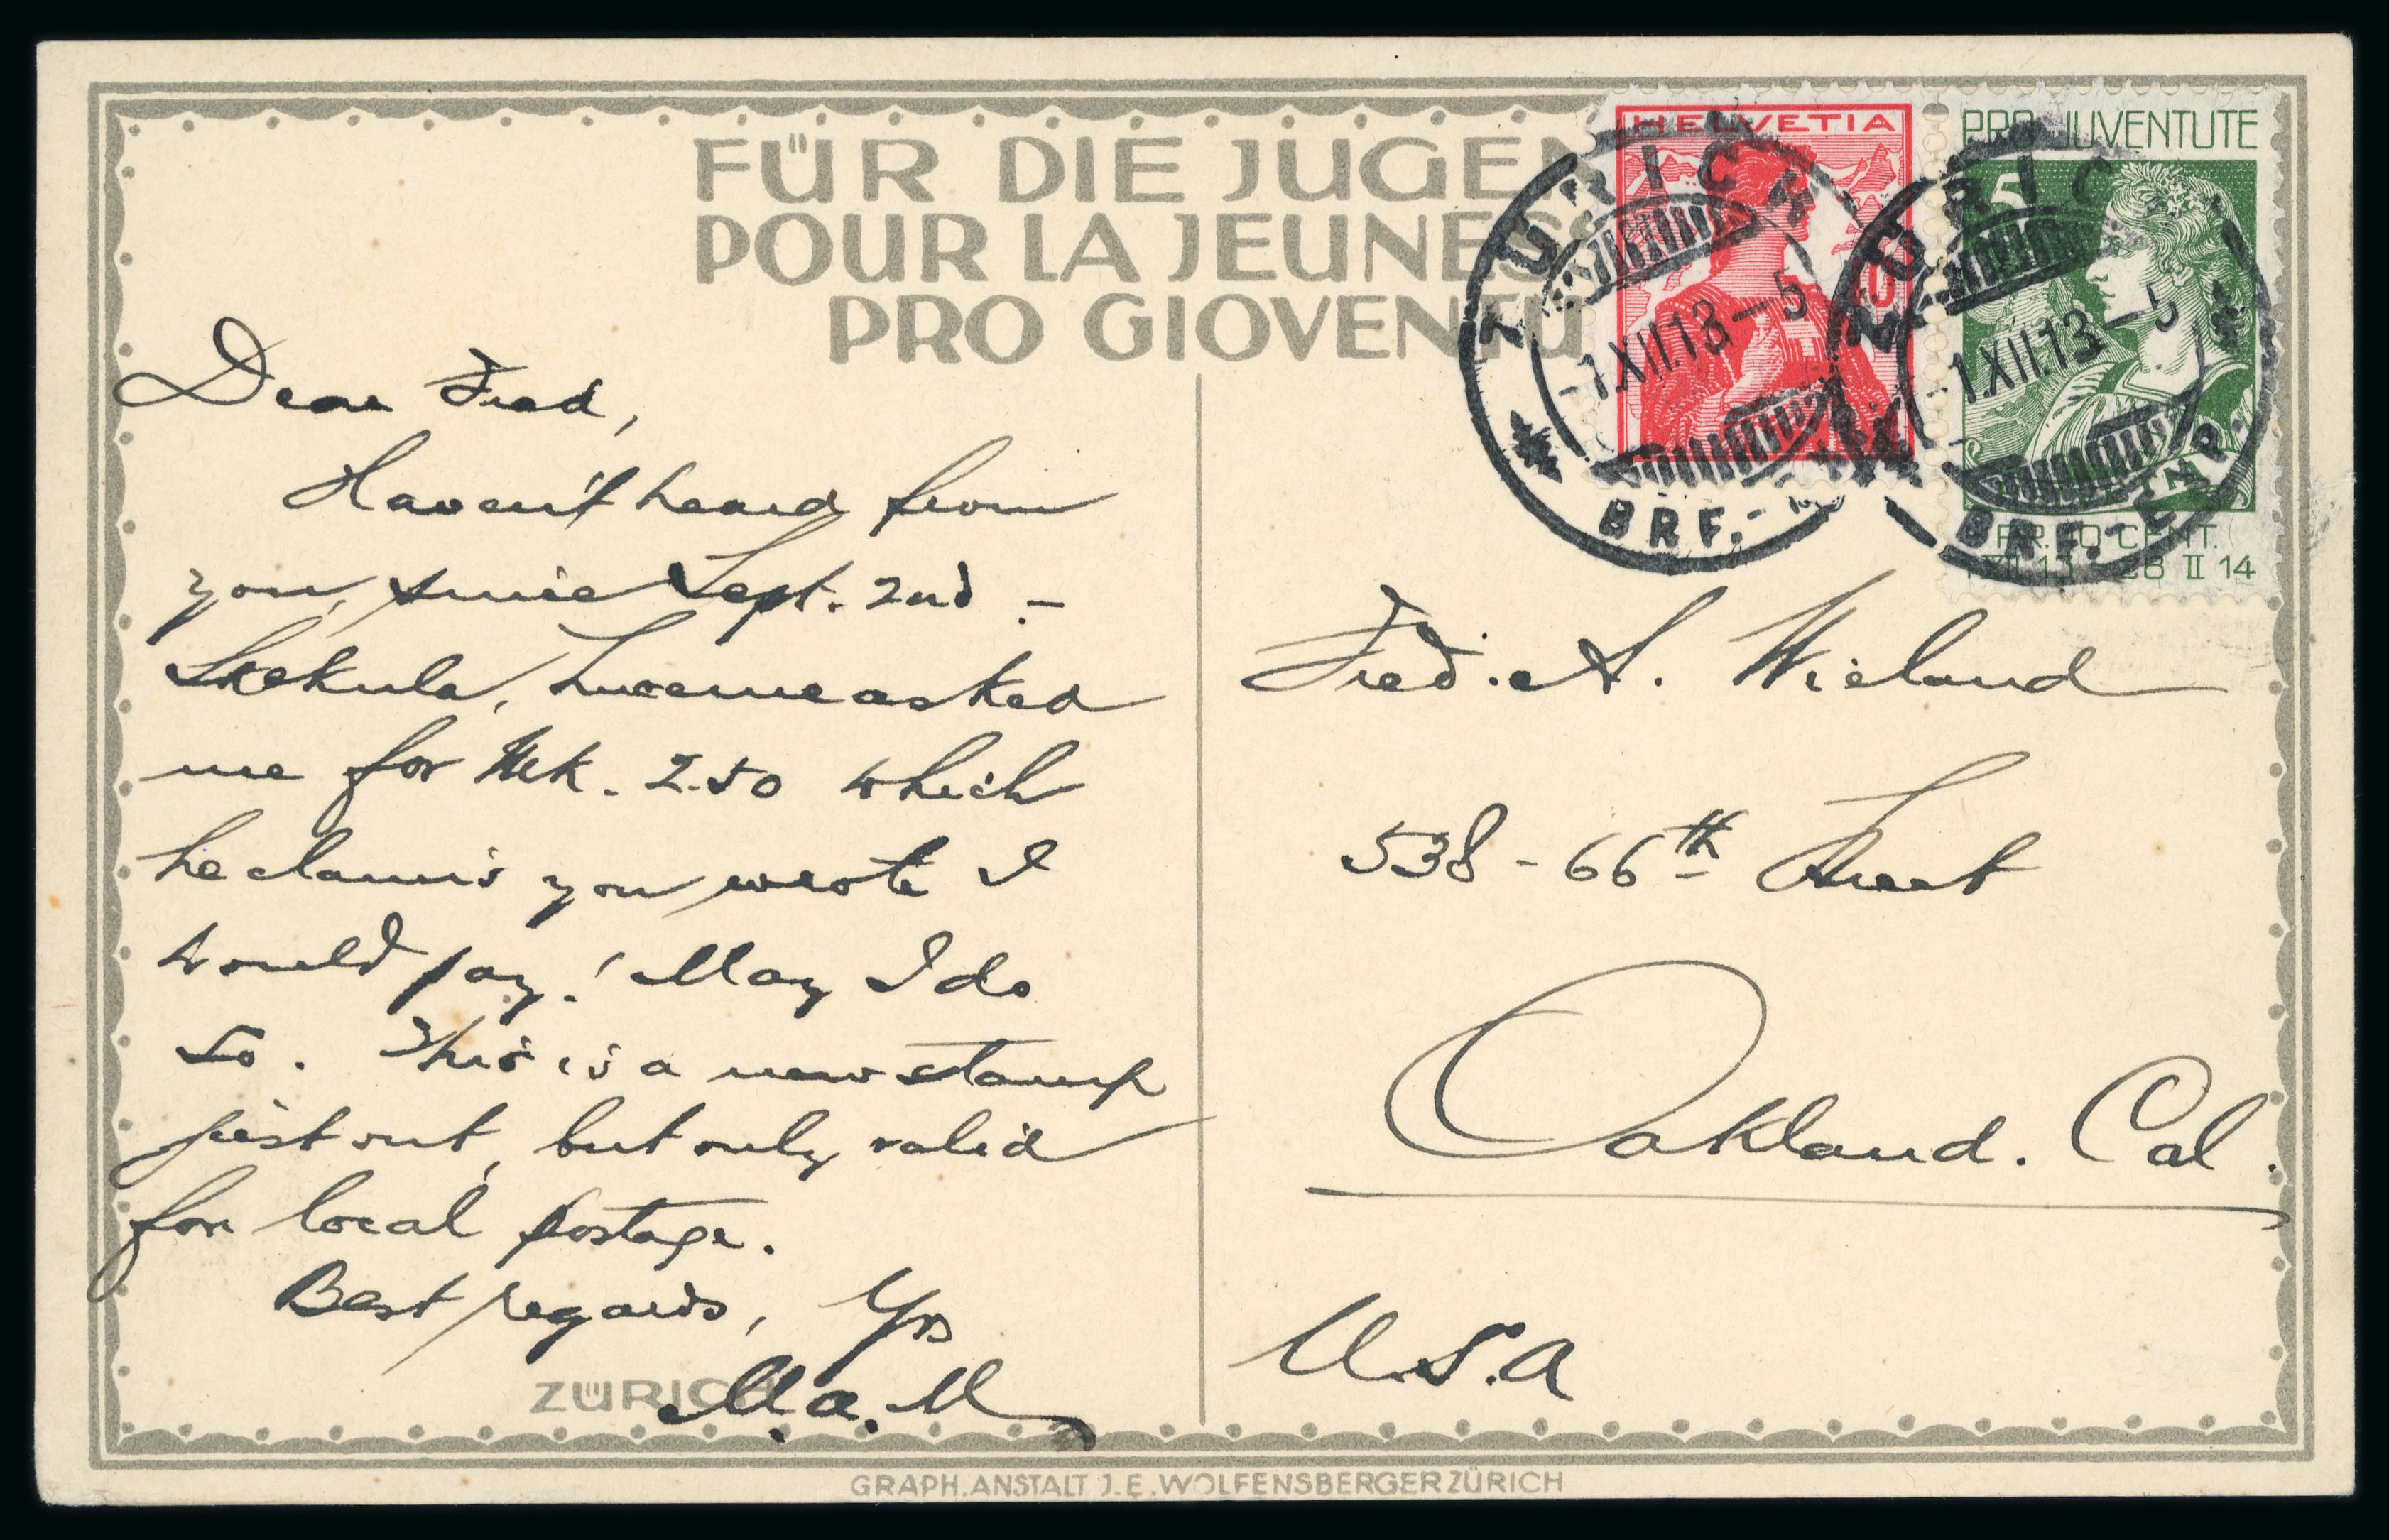 FÜR DIE JUGEN
POUR LA JEUNESS
PRO GIOVENTU
HELVETIA
PRO JUVENTUTE
5
ZURICH
1.XII.13–5
BRF.
ZURIC
1.XII.13–5
BRF.-EXP.
FR. 10 CENT.
1 XII 13 - 28 II 14
Dear Fred,
Haven't heard from
you, since Sept. 2nd –
Szekula, Lucerne asked
me for Mk. 2.50 which
he claims you wrote I
would pay! May I do
so. This is a new stamp
just out, but only valid
for local postage.
Best regards, Yrs
M.a.M
Fred. A. Wieland
538 - 66th Street
Oakland. Cal.
U.S.A
ZÜRICH
GRAPH. ANSTALT J. E. WOLFENSBERGER ZÜRICH